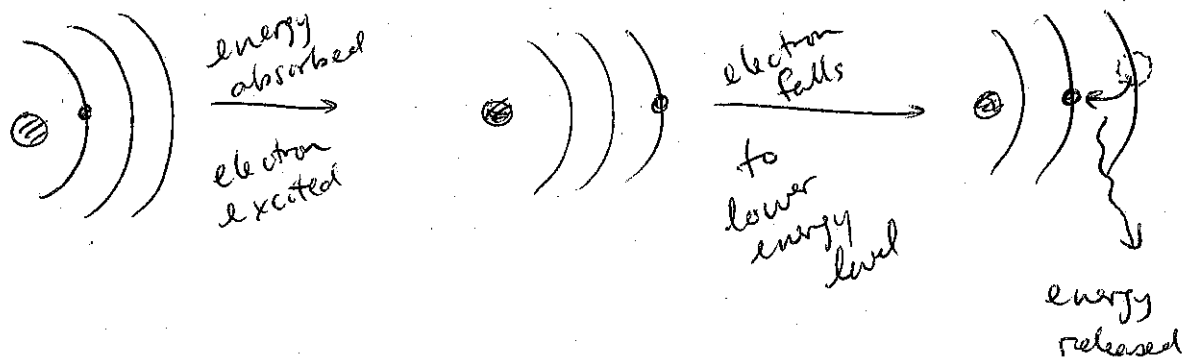 energy
absorbed
electron
excited
electron
falls
to
lower
energy
level
energy
released